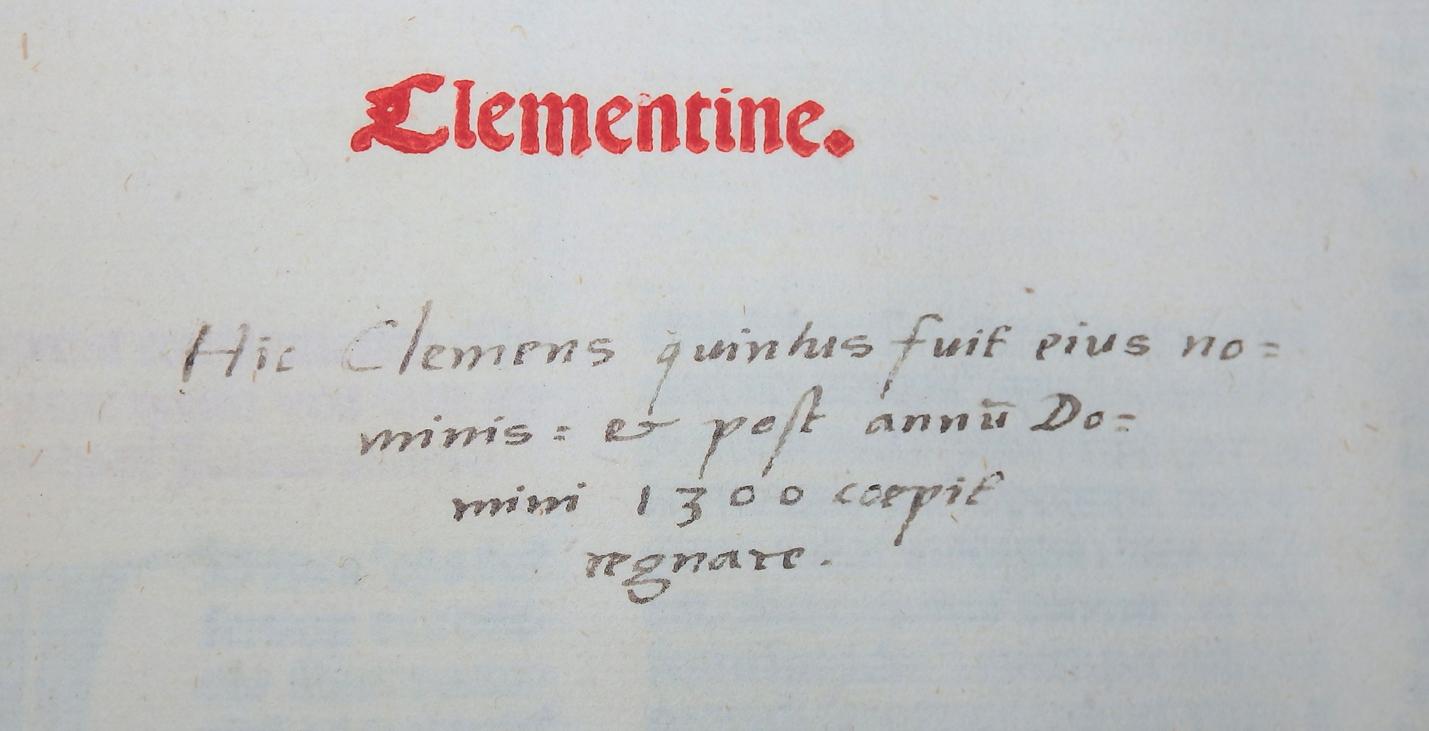 Clementine.
Hic Clemens quintus fuit eius no=
minis: & post annū Do=
mini 1300 cœpit
regnare.